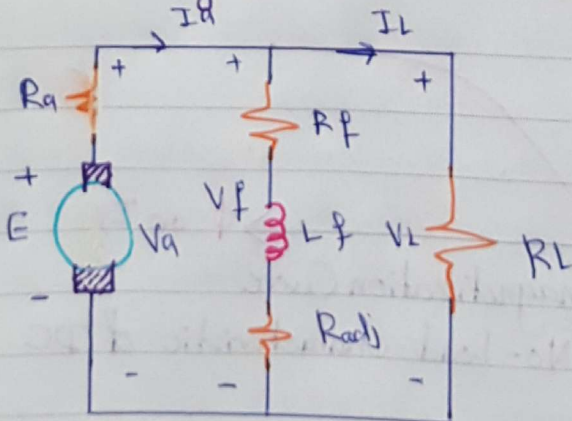 Ia IL
+ + +
Ra Rf
+ Vf
E Va Lf VL RL
-
Radj
- - -